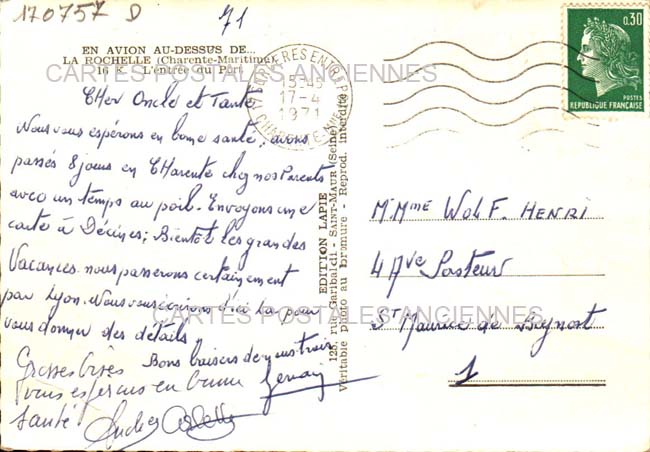 170757 D
71
EN AVION AU-DESSUS DE...
LA ROCHELLE (Charente-Maritime)
16 K. L'entrée du Port
CARTES POSTALES ANCIENNES
15-45
17-4
1971
0,30
POSTES
REPUBLIQUE FRANÇAISE
CHer Oncle et Tante
Nous vous espérons en bonne santé, avons
passés 8 jours en CHarente chez nos Parents
avec un temps au poil. Envoyons une
carte à Décines; Bientôt les grandes
Vacances. nous passerons certainement
par Lyon. Nous vous écrirons d'ici là pour
vous donner des détails
Bons baisers de nous trois
Grosses bises
vous espérons en bonne
santé
EDITION LAPIE
125, rue Garibaldi - SAINT-MAUR (Seine)
Véritable photo au bromure - Reprod. interdite
Mr Mme Wolf. HENRI
4 Ave Pasteur
St Maurice de Beynost
1
CARTES POSTALES ANCIENNES